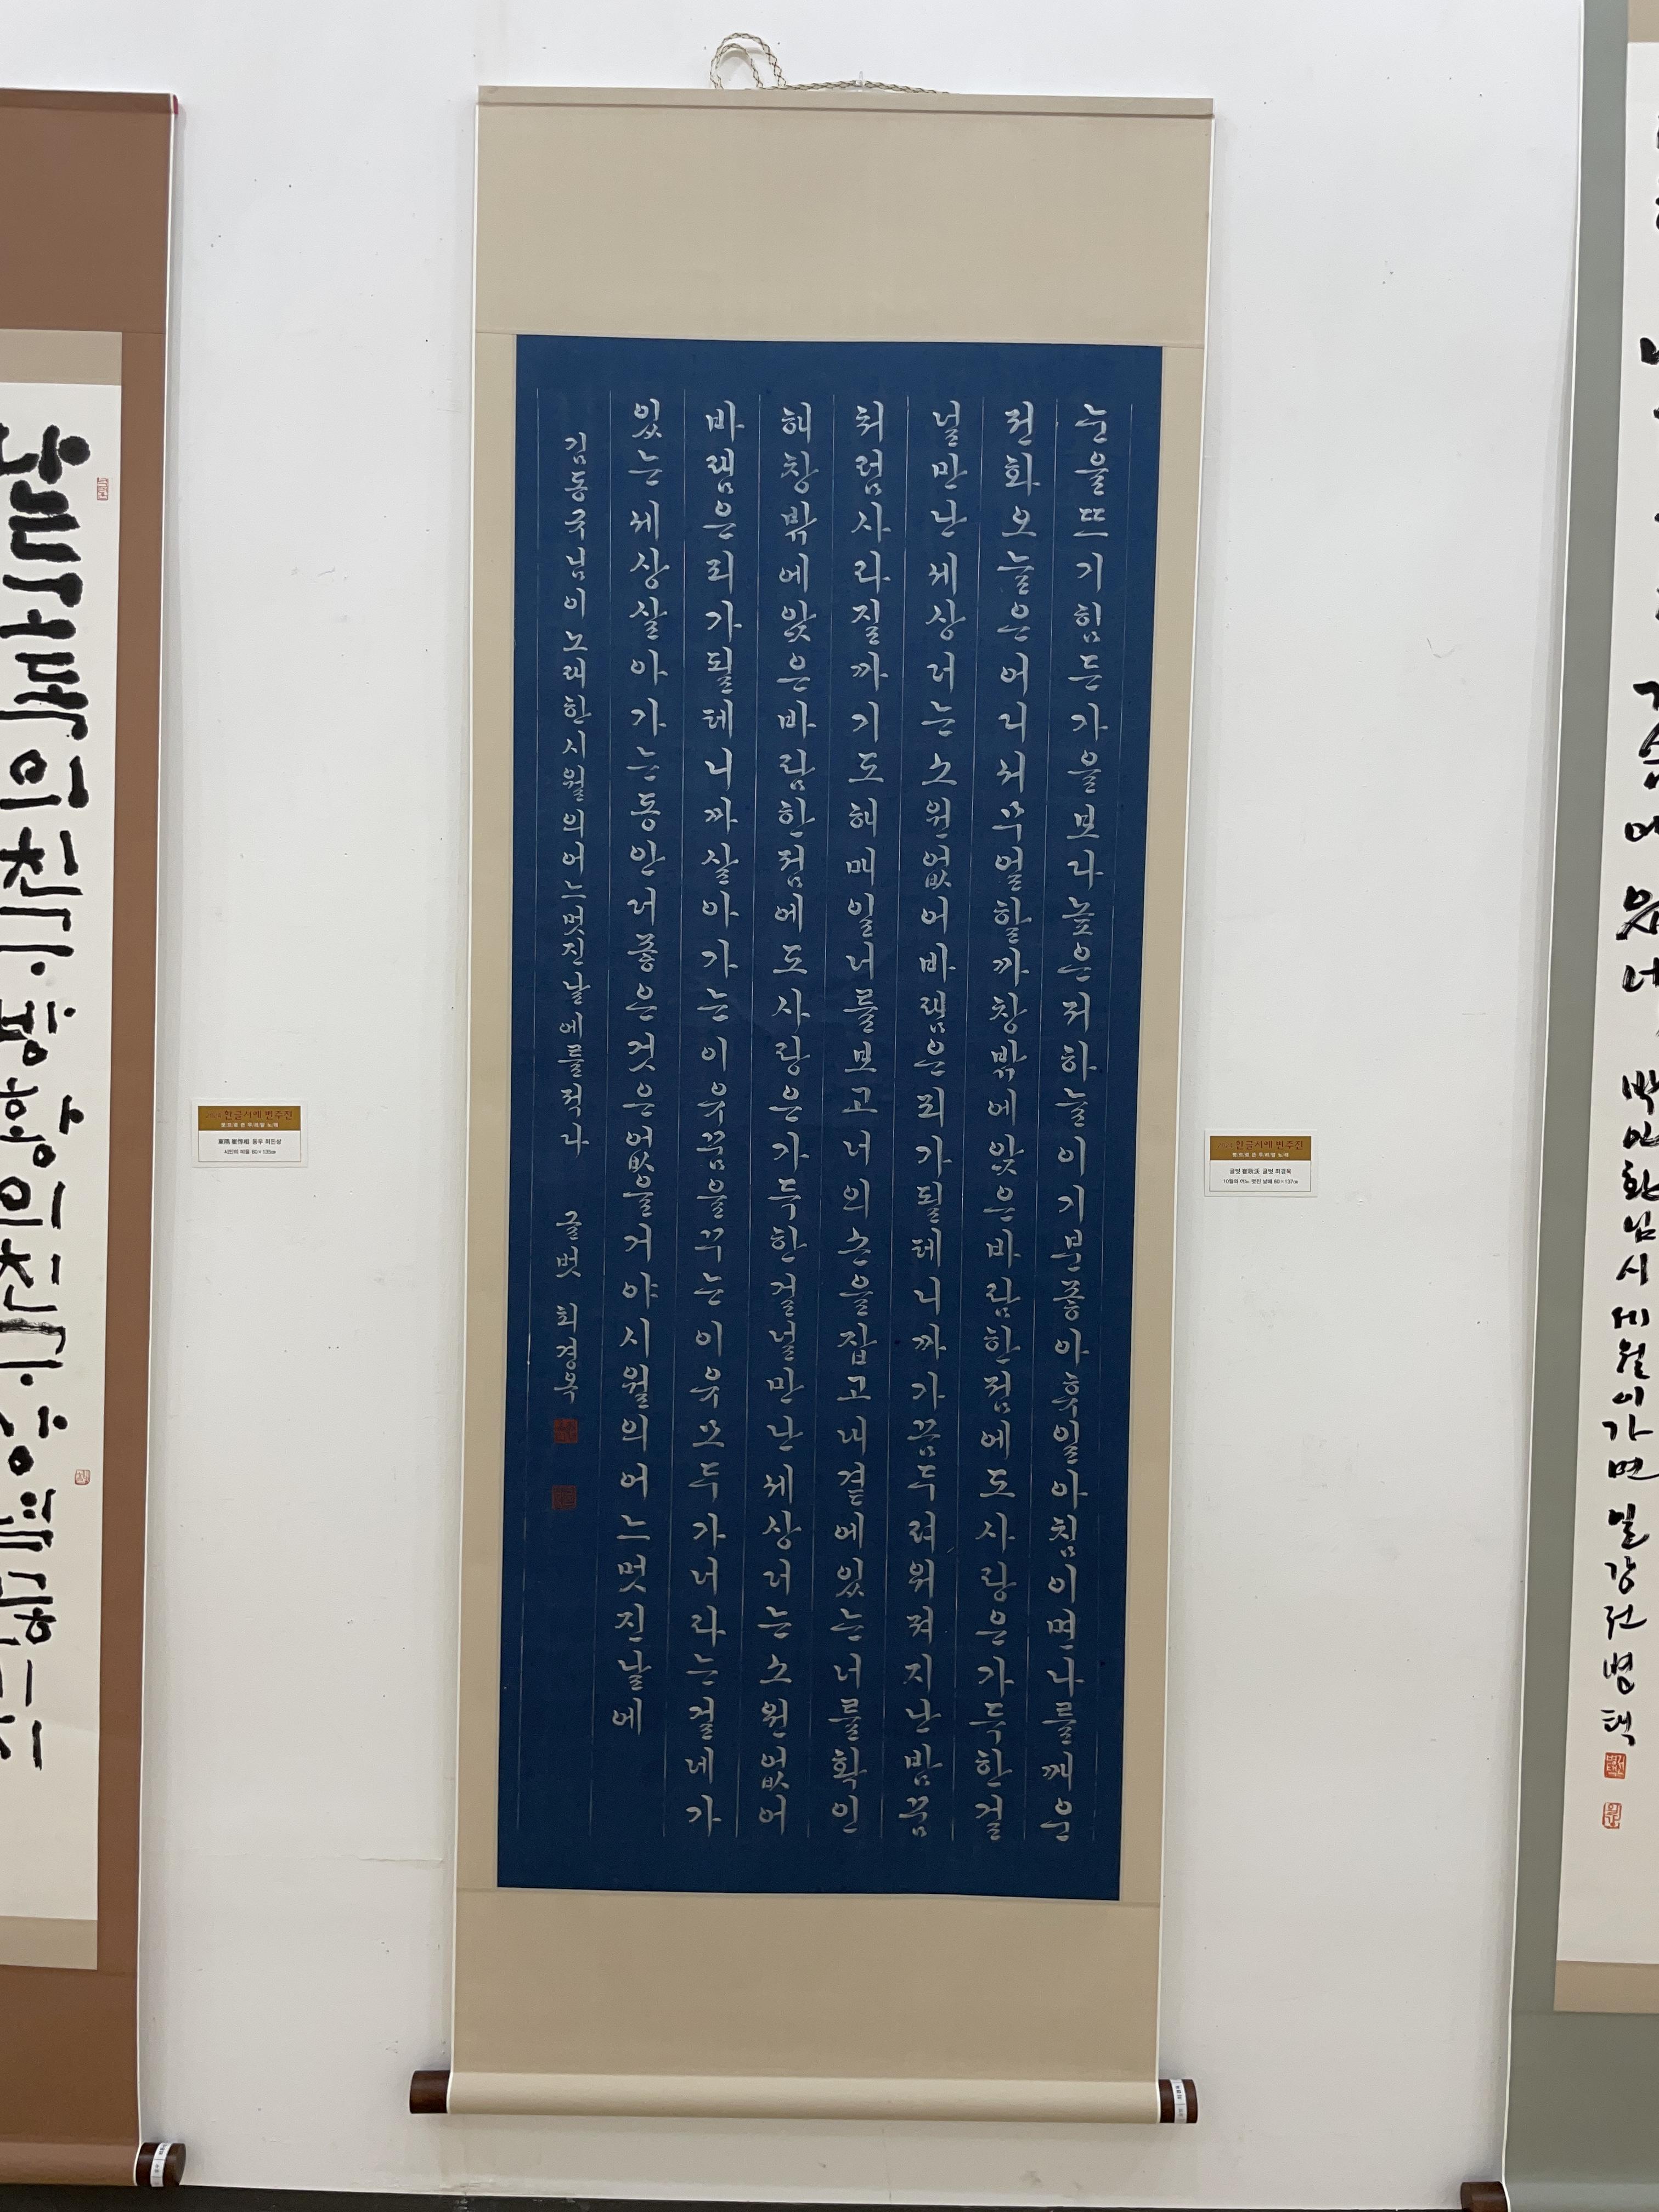 눈을뜨기힘든가을보다높은저하늘이기분좋아휴일아침이면나를깨운
전화오늘은어디서무얼할까창밖에앉은바람한점에도사랑은가득한걸
널만난세상더는소원없어바램은죄가될테니까가끔두려워져지난밤꿈
처럼사라질까기도해매일너를보고너의손을잡고내곁에있는너를확인
해창밖에앉은바람한점에도사랑은가득한걸널만난세상더는소원없어
바램은죄가될테니까살아가는이유꿈을꾸는이유모두가너라는걸네가
있는세상살아가는동안더좋은것은없을거야시월의어느멋진날에
김동규님이노래한시월의어느멋진날에를적다 글벗 최경옥
한글서예 변주전
글벗 최경옥
10월의 어느 멋진 날에 60×137㎝
한글서예 변주전
동우 최돈상
시인의 마을 60×135㎝
나는고독의친구방황의친구상념끊기지
가슴에 있네 박인환님시세월이가면 일강전병택